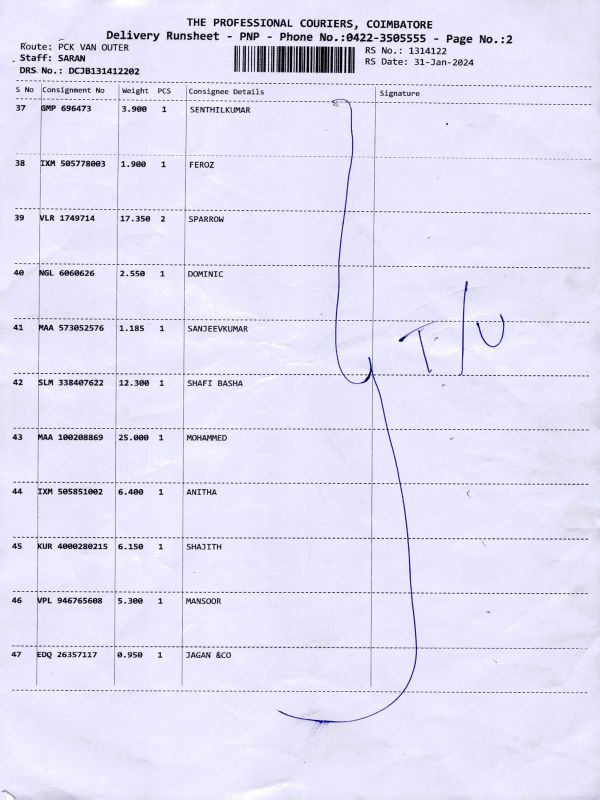 THE PROFESSIONAL COURIERS, COIMBATORE
Delivery Runsheet - PNP - Phone No.:0422-3505555 - Page No.:2
Route: PCK VAN OUTER
RS No.: 1314122
Staff: SARAN
RS Date: 31-Jan-2024
DRS No.: DCJB131412202
S No Consignment No Weight PCS Consignee Details Signature
37 GMP 696473 3.900 1 SENTHILKUMAR
38 IXM 505778003 1.900 1 FEROZ
39 VLR 1749714 17.350 2 SPARROW
40 NGL 6060626 2.550 1 DOMINIC
41 MAA 573052576 1.185 1 SANJEEVKUMAR
T/U
42 SLM 338407622 12.300 1 SHAFI BASHA
43 MAA 100208869 25.000 1 MOHAMMED
44 IXM 505851002 6.400 1 ANITHA
45 KUR 4000280215 6.150 1 SHAJITH
46 VPL 946765608 5.300 1 MANSOOR
47 EDQ 26357117 0.950 1 JAGAN &CO